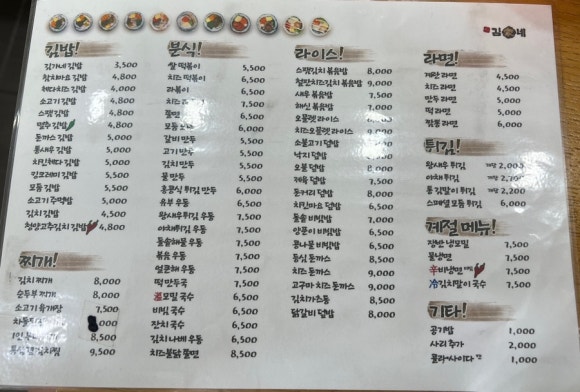 김家네
김밥!
김가네 김밥 3,500
참치마요 김밥 4,800
체다치즈 김밥 4,800
소고기 김밥 4,800
스팸 김밥 4,800
땡추 김밥 4,800
돈까스 김밥 5,000
통새우 김밥 5,000
치킨체다 김밥 5,000
모듬 김밥 5,000
소고기 주먹밥 5,000
김치 김밥 4,500
청양고추김치 김밥 4,800
찌개!
김치 찌개 8,000
순두부 찌개 8,000
소고기 육개장 7,500
8,500
9,500
분식!
쌀 떡볶이 5,500
치즈 떡볶이
라볶이
쫄면
갈비 만두
고기 만두 5,500
김치 만두 5,500
물 만두 5,500
홍콩식 튀김 만두 6,000
유부 우동 6,500
왕새우튀김 우동 7,500
야채튀김 우동 7,500
해물 우동 7,500
볶음 우동 7,500
얼큰해 우동 7,500
떡 만두국 7,500
온모밀 국수 6,500
비빔 국수 6,500
잔치 국수 6,500
김치 나베 우동 6,500
치즈불닭 쫄면 8,500
라이스!
스팸김치 볶음밥 8,000
철판치즈김치 볶음밥 9,000
새우 볶음밥 7,500
해신 볶음밥 7,000
오믈렛 라이스
치즈오믈렛 라이스
소불고기 덮밥
낙지 덮밥
오불 덮밥 8,000
제육 덮밥 7,500
돈커리 덮밥 8,000
치킨마요 덮밥 6,500
돌솥 비빔밥 7,000
양푼이 비빔밥 6,500
콩나물 비빔밥 6,500
등심 돈까스 8,000
치즈 돈까스 9,000
고구마 치즈 돈까스 9,000
김치가츠동 8,500
닭갈비 덮밥 8,500
라면!
계란 라면 4,500
치즈 라면 4,500
만두 라면 5,000
떡 라면 5,000
짬뽕 라면 6,000
튀김!
왕새우 튀김 개당 2,000
야채 튀김 개당 2,200
통 김말이 튀김 개당 2,200
스페셜 모듬 튀김 6,000
계절 메뉴!
장반 냉모밀 7,500
물냉면 7,500
辛비빔냉면 7,500
冷김치말이 국수 7,500
기타!
공기밥 1,000
사리 추가 2,000
콜라•사이다 1,000